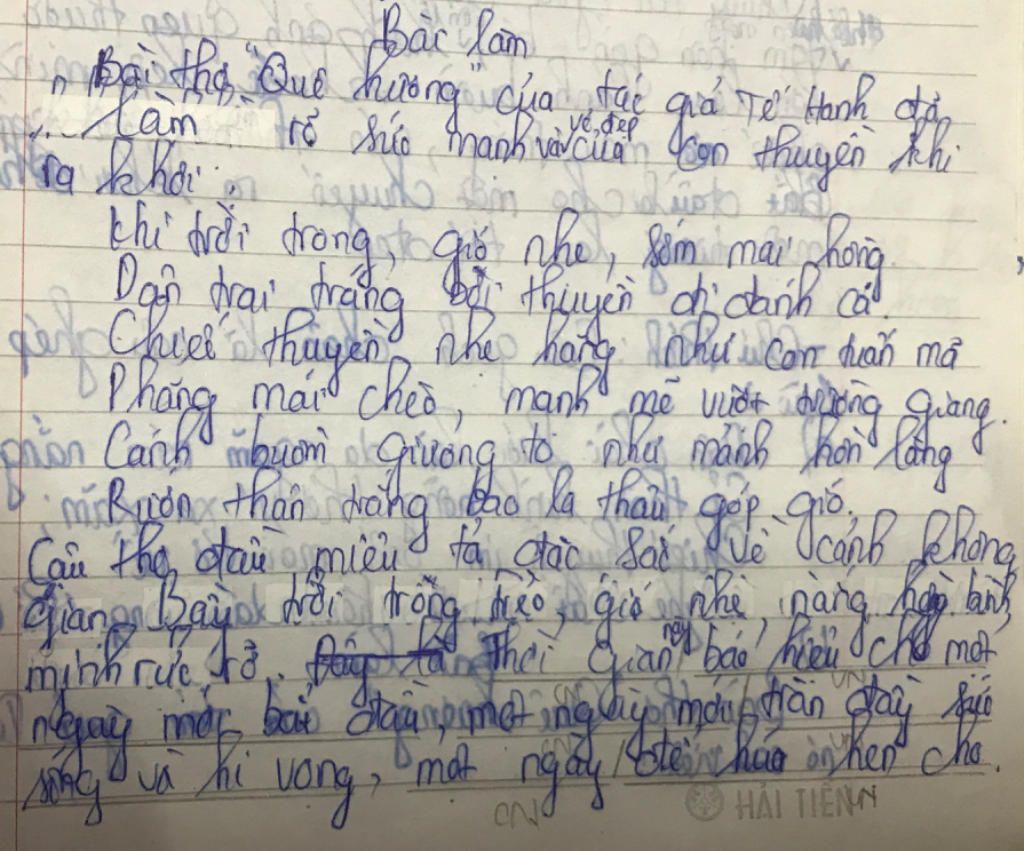 Bài làm
"Bài thơ "Quê hương" của tác giả Tế Hanh đã
làm rõ sức mạnh và vẻ đẹp của con thuyền khi
ra khơi:
Khi trời trong, gió nhẹ, sớm mai hồng
Dân trai tráng bơi thuyền đi đánh cá.
Chiếc thuyền nhẹ hăng như con tuấn mã
Phăng mái chèo, mạnh mẽ vượt trường giang.
Cánh buồm giương to như mảnh hồn làng
Rướn thân trắng bao la thâu góp gió.
Câu thơ đầu miêu tả đặc sắc về cảnh không
gian. Bầu trời trong trẻo, gió nhẹ, nắng bình
minh rực rỡ. Thời gian này báo hiệu cho một
ngày mới bắt đầu, một ngày mới tràn đầy sức
sống và hi vọng, một ngày hẹn cho
CN
HẢI TIẾN
VN